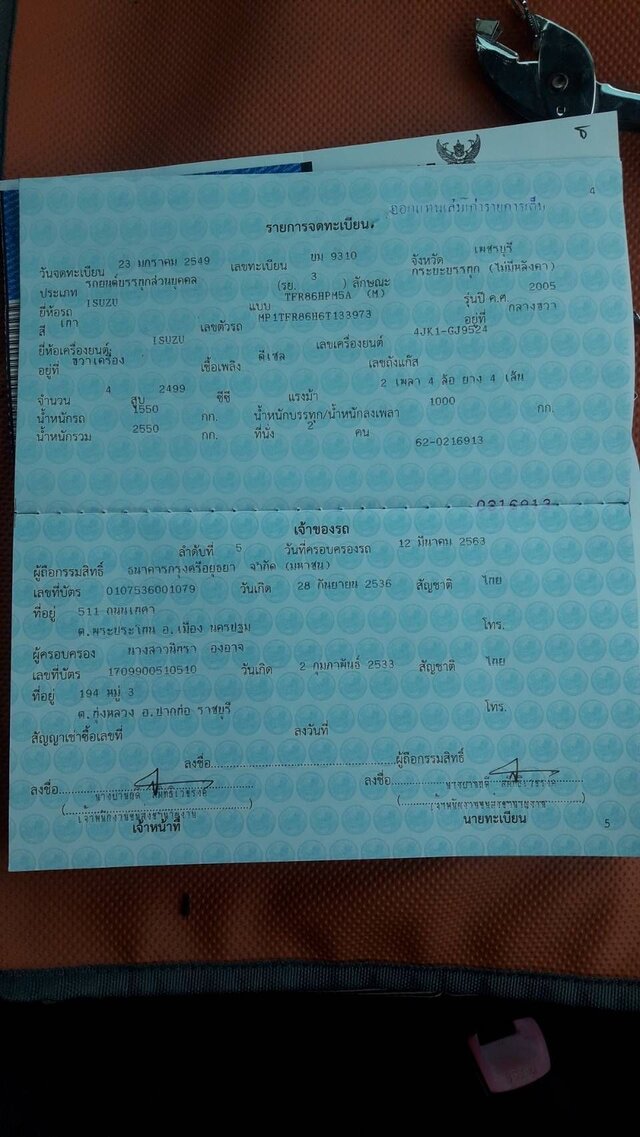 4
ออกแทนเล่มเก่ารายการเต็ม
รายการจดทะเบียน
วันจดทะเบียน 23 มกราคม 2549 เลขทะเบียน ยม 9310 จังหวัด เพชรบุรี
ประเภท รถยนต์บรรทุกส่วนบุคคล (รย. 3 ) ลักษณะ กระยะบรรทุก (ไม่มีหลังคา)
ยี่ห้อรถ ISUZU แบบ TFR86HPM5A (M) รุ่นปี ค.ศ. 2005
สี เทา เลขตัวรถ MP1TFR86H6T133973 อยู่ที่ กลางขวา
ยี่ห้อเครื่องยนต์ ISUZU เลขเครื่องยนต์ 4JK1-GJ9524
อยู่ที่ ขวาเครื่อง เชื้อเพลิง ดีเซล เลขถังแก๊ส
จำนวน 4 สูบ 2499 ซีซี แรงม้า 2 เพลา 4 ล้อ ยาง 4 เส้น
น้ำหนักรถ 1550 กก. น้ำหนักบรรทุก/น้ำหนักลงเพลา 1000 กก.
น้ำหนักรวม 2550 กก. ที่นั่ง 2 คน
62-0216913
0216913
เจ้าของรถ
ลำดับที่ 5 วันที่ครอบครองรถ 12 มีนาคม 2563
ผู้ถือกรรมสิทธิ์ ธนาคารกรุงศรีอยุธยา จำกัด (มหาชน)
เลขที่บัตร 0107536001079 วันเกิด 28 กันยายน 2536 สัญชาติ ไทย
ที่อยู่ 511 ถนนเพคา
ต.พระประโทน อ.เมือง นครปฐม โทร.
ผู้ครอบครอง นางสาวนิศรา องอาจ
เลขที่บัตร 1709900510510 วันเกิด 2 กุมภาพันธ์ 2533 สัญชาติ ไทย
ที่อยู่ 194 หมู่ 3
ต.ทุ่งหลวง อ.ปากท่อ ราชบุรี โทร.
สัญญาเช่าซื้อเลขที่ ลงวันที่
ลงชื่อ ผู้ถือกรรมสิทธิ์
ลงชื่อ ลงชื่อ
เจ้าพนักงานขนส่งชำนาญงาน เจ้าพนักงานขนส่งชำนาญงาน
เจ้าหน้าที่ นายทะเบียน
5